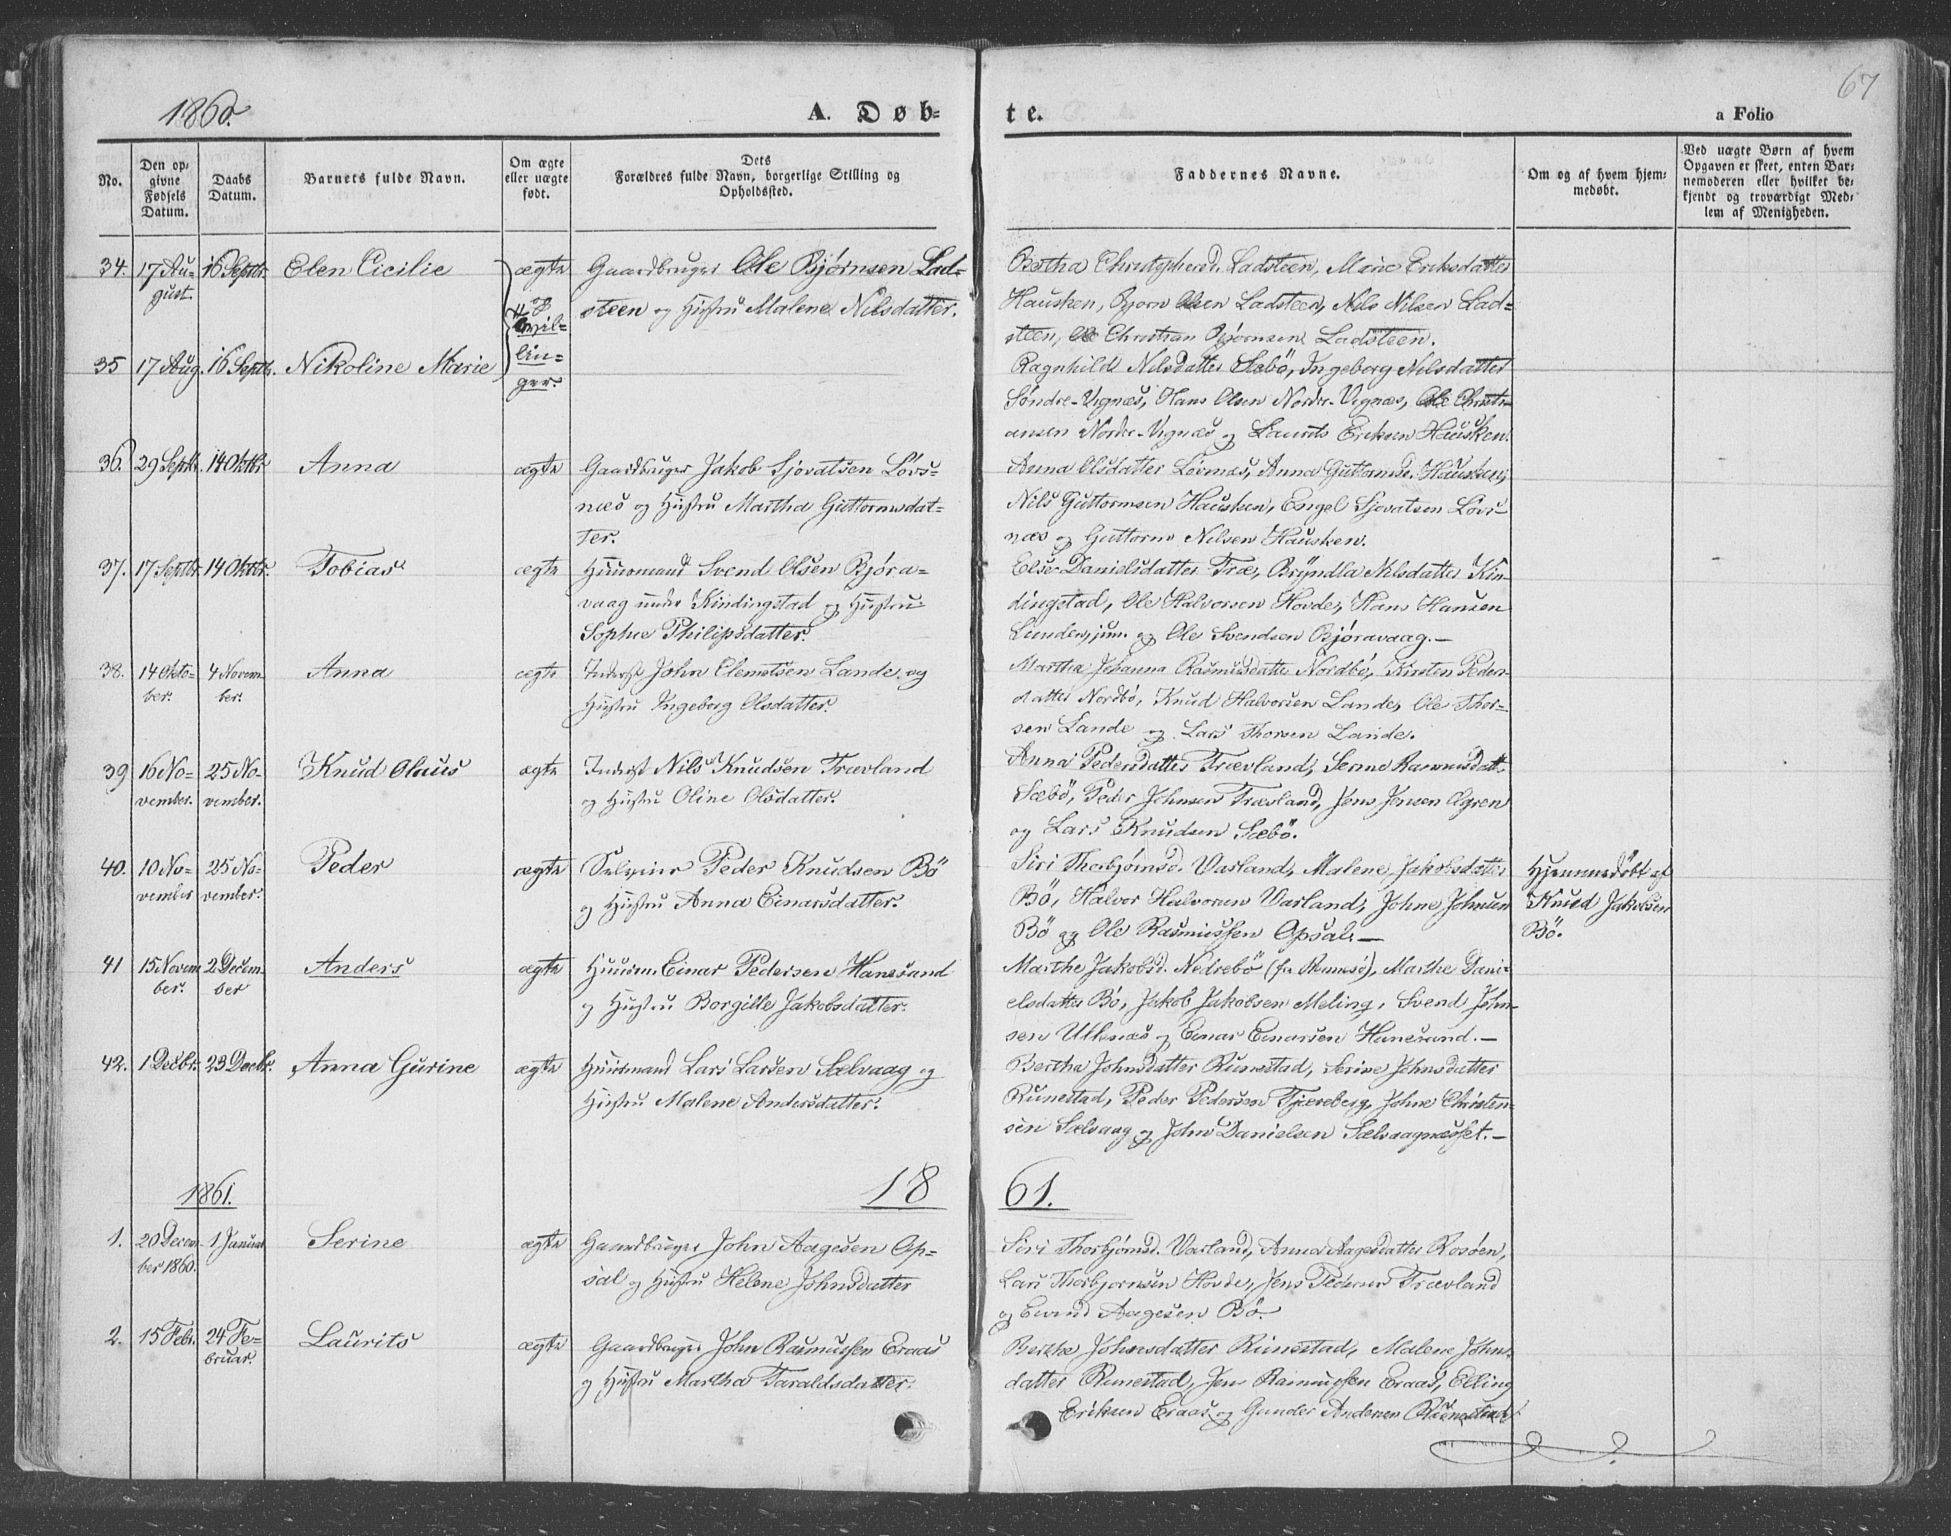 67
1860.
A. Døb-
te.
a Folio
No.
Den op-
givne
Fødsels
Datum.
Daabs
Datum.
Barnets fulde Navn.
Om ægte
eller uægte
født.
Dets
Forældres fulde Navn, borgerlige Stilling og
Opholdssted.
Faddernes Navne.
Om og af hvem hjem-
medøbt.
Ved uægte Børn af hvem
Opgaven er skeet, enten Bar-
nemoderen eller hvilket be-
kjendt og troværdigt Med-
lem af Menigheden.
34. 17 Au- 16 Septbr. Elen Cicilie ægte Gaardbruger Ole Bjørnsen Lad-
gust.
steen og Hustru Malene Nilsdatter.
Bertha Christophersd. Ladsteen, Marie Eriksdatter
Hausken, Bjørn Olsen Ladsteen, Nils Nilsen Lad-
steen, Ole Christian Bjørnsen Ladsteen.
Tvil-
lin-
ger.
35 17 Aug. 16 Septbr. Nikoline Marie
Ragnhilde Nilsdatter Sæbö, Ingeborg Nilsdatter
Søndre-Vignæs, Hans Olsen Nordre-Vignæs, Ole Christi-
ansen Nordre-Vignæs og Laurits Eriksen Hausken.
36. 29 Septbr. 14 Oktbr. Anna ægte Gaardbruger Jakob Sjovatsen Lövs-
næs og Hustru Martha Guttormsdat-
ter.
Anna Olsdatter Lövsnæs, Anna Guttormsd. Hausken,
Nils Guttormsen Hausken, Engel Sjovatsen Lövs-
næs og Guttorm Nilsen Hausken.
37. 17 Septbr. 14 Oktbr. Tobias ægte Huusmand Svend Olsen Björa-
vaag under Kindingstad og Hustru
Sophie Philipsdatter.
Else Danielsdatter Træ, Bryndla Nilsdatter Kin-
dingstad, Ole Halvorsen Hovde, Hans Hansen
Lunde, jun. og Ole Svendsen Björavaag.—
38. 14 Okto- 4 Novem- Anna ægte Inderst John Clemetsen Lande og
ber. ber.
Hustru Ingeborg Olsdatter.
Martha Johanna Rasmusdatter Nordbö, Kirsten Peders-
datter Nordbö, Knud Halvorsen Lande, Ole Thor-
sen Lande og Lars Thorsen Lande.
39 16 No- 25 No- Knud Olaus ægte Inderst Nils Knudsen Trævland
vember. vember. og Hustru Oline Olsdatter.
Anna Pedersdatter Trævland, Serine Rasmusdatt.
Sæbö, Peder Johnsen Trævland, Jens Jensen Ögren
og Lars Knudsen Sæbö.
40. 10 No- 25 No- Peder ægte Selveier Peder Knudsen Bö
vember vember. og Hustru Anna Einarsdatter.
Siri Thorbjörnsd. Varland, Malene Jakobsdatter
Bö, Halvor Halvorsen Varland, Johne Johnsen
Bö og Ole Rasmussen Opsal.—
Hjemmedöbt af
Knud Jakobsen
Bö.
41 15 Novem- 2 Decem- Anders ægte Huusm. Einar Pedersen Hanesand
ber. ber
og Hustru Borgille Jakobsdatter.
Marthe Jakobsd. Nedrebö (fra Rennesö), Marthe Dani-
elsdatter Bö, Jakob Jakobsen Meling, Svend John-
sen Utsknæs og Einar Einarsen Hanesand.—
42. 1 Decbr. 23 Decbr. Anna Gurine ægte Huusmand Lars Larsen Sælvaag og
Hustru Malene Andersdatter.
Bertha Johnsdatter Runestad, Serine Johnsdatter
Runestad, Peder Pedersen Tjæreberg, Johne Christen-
sen Sælvaag og John Danielsen Sælvaagnæsset.—
1861.
18
61.
1. 20 Decem- 1 Januar Serine ægte Gaardbruger John Aagesen Op-
ber 1860.
sal og Hustru Helene Johnsdatter
Siri Thorbjörnsd. Varland, Anna Aagesdatter Rosöen,
Lars Thorbjørnsen Hovde, Jens Pedersen Trævland
og Evend Aagesen Bö.
2. 15 Febr. 24 Fe- Laurits ægte Gaardbruger John Rasmussen Eraas
bruar. og Hustru Martha Taraldsdatter.
Berthe Johnsdatter Runestad, Malene Johns-
datter Runestad, Jens Rasmussen Eraas, Elling
Eriksen Eraas og Gunder Andersen Runestad